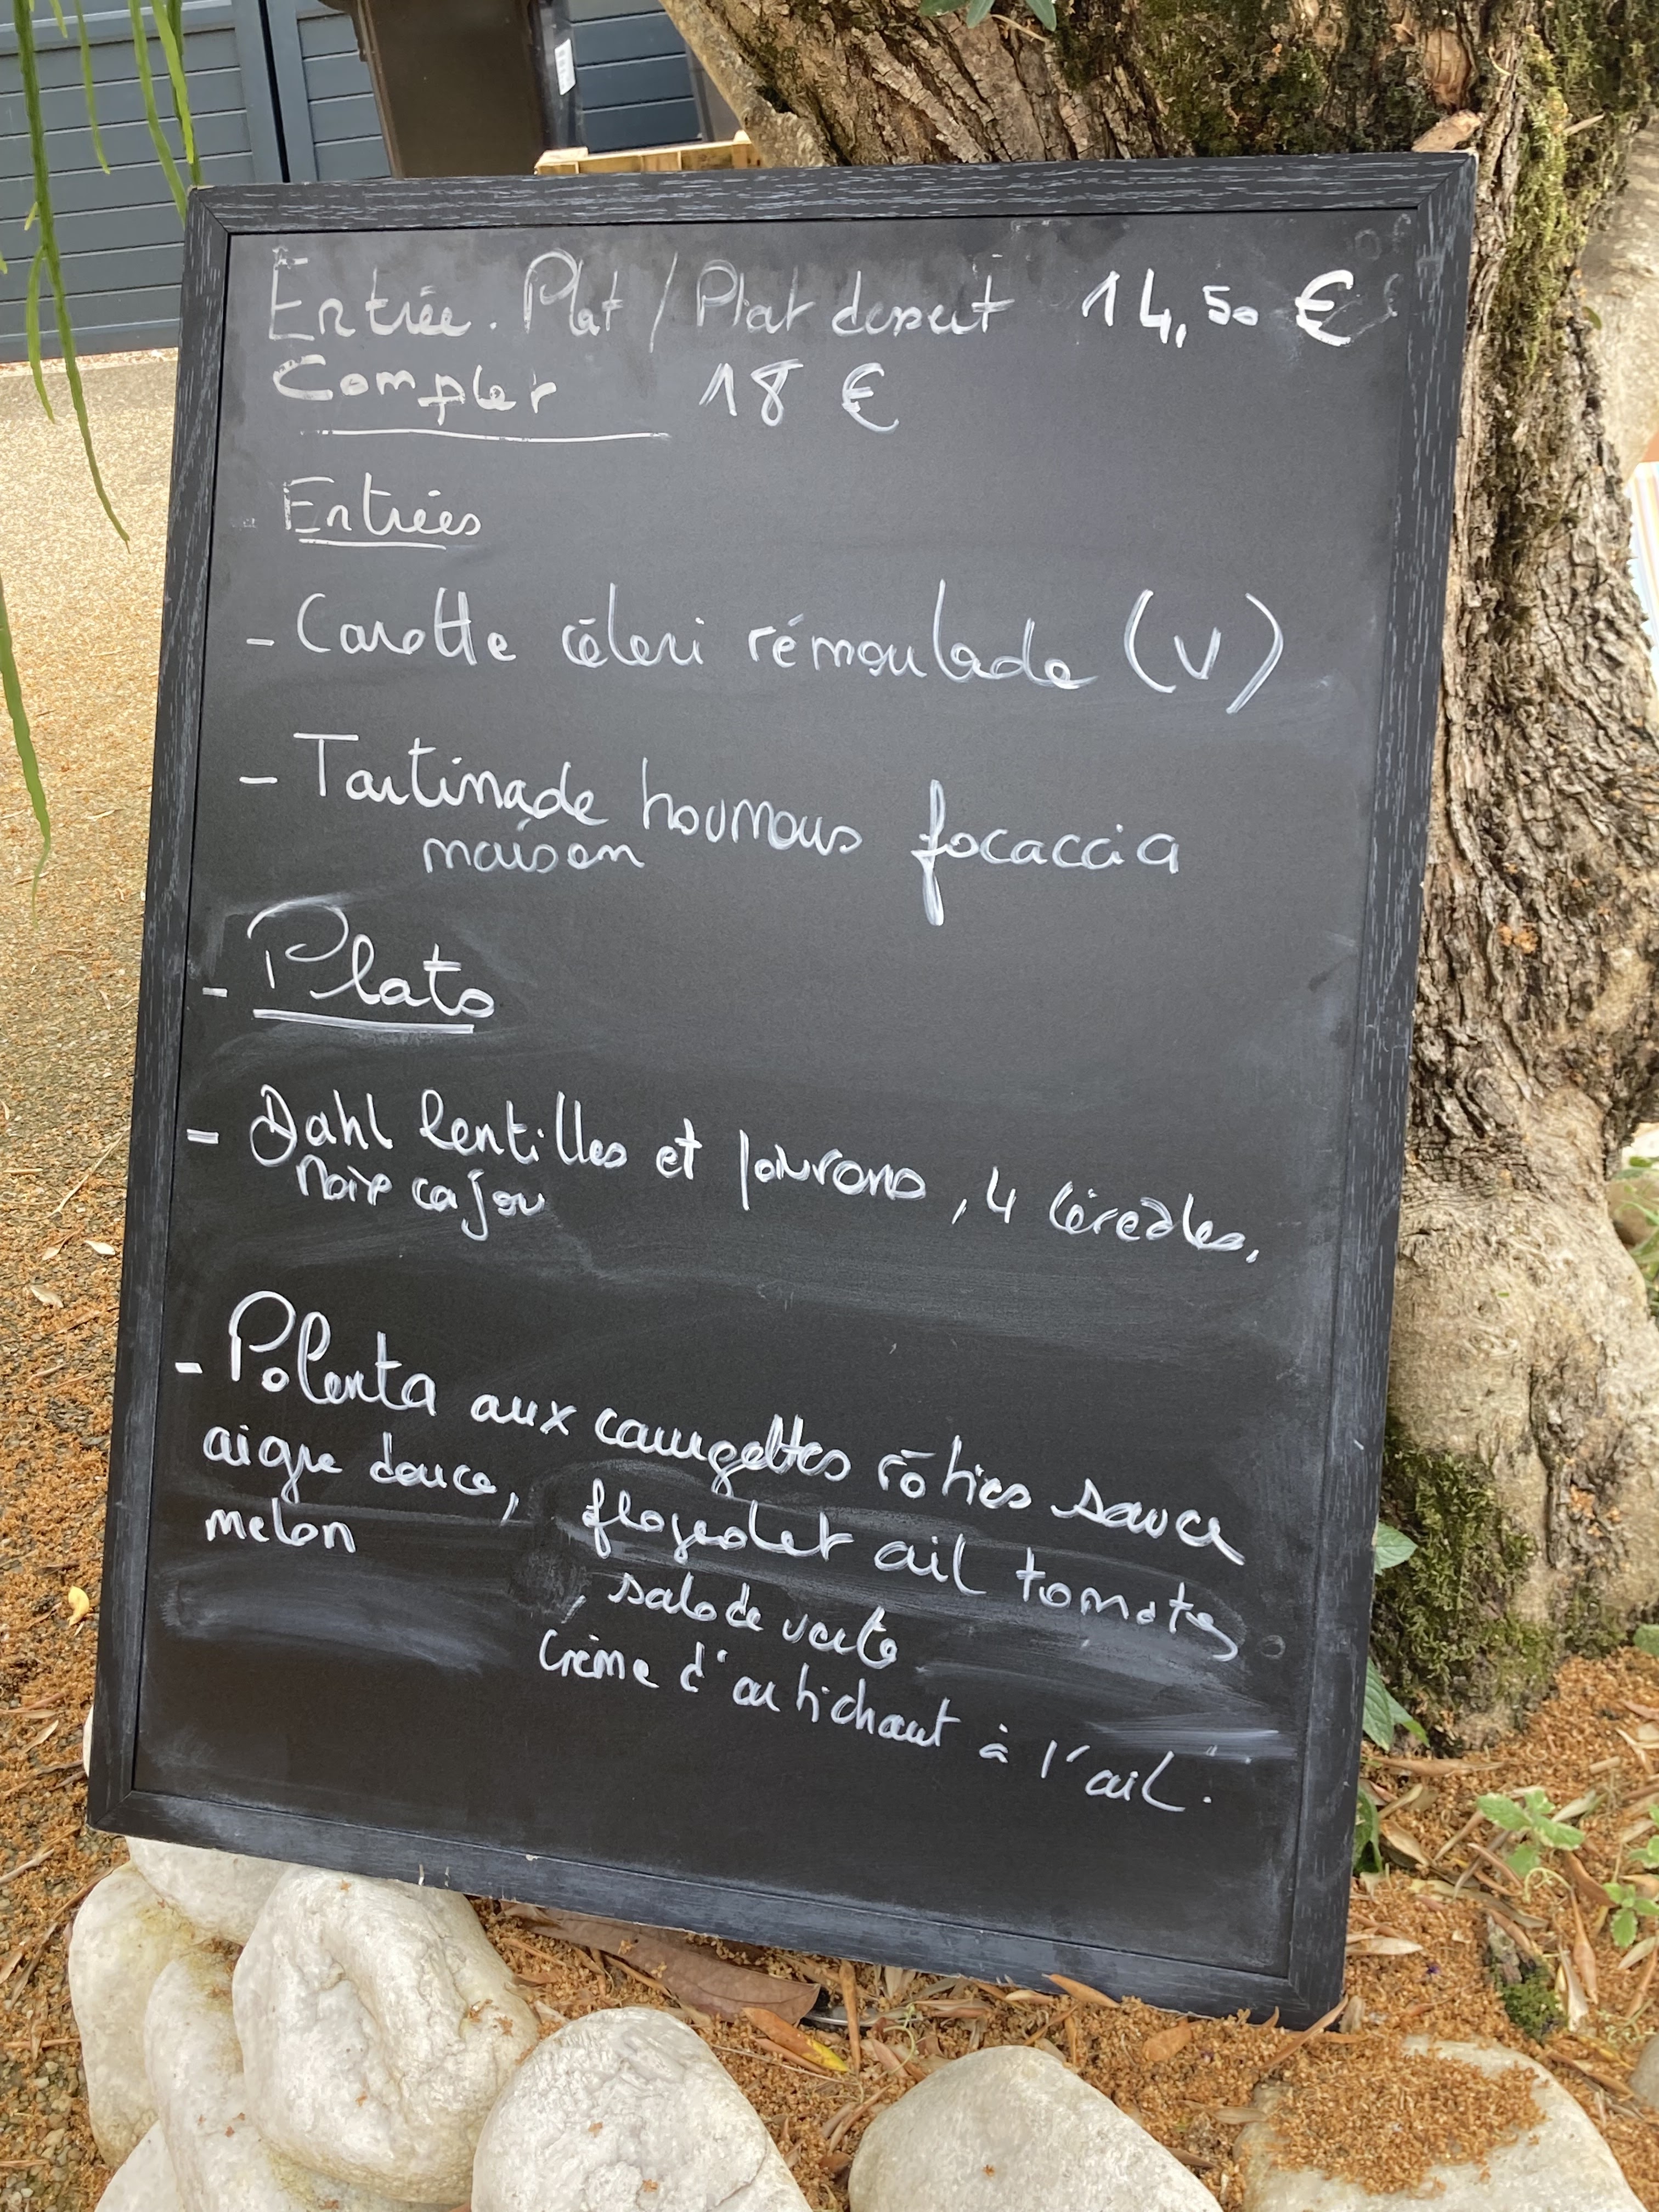 Entrée. Plat / Plat dessert 14,50 €
Complet 18 €
Entrées
- Carotte céleri rémoulade (V)
- Tartinade houmous focaccia
maison
- Plats
- Dahl lentilles et poivrons, 4 céréales,
Noix cajou
- Polenta aux courgettes rôties sauce
aigre douce, flageolet ail tomates
melon , salade verte
Crème d'artichaut à l'ail.